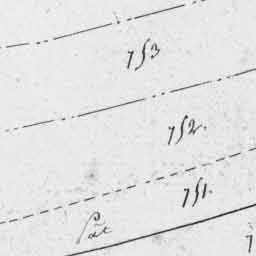 753
752.
751.
7